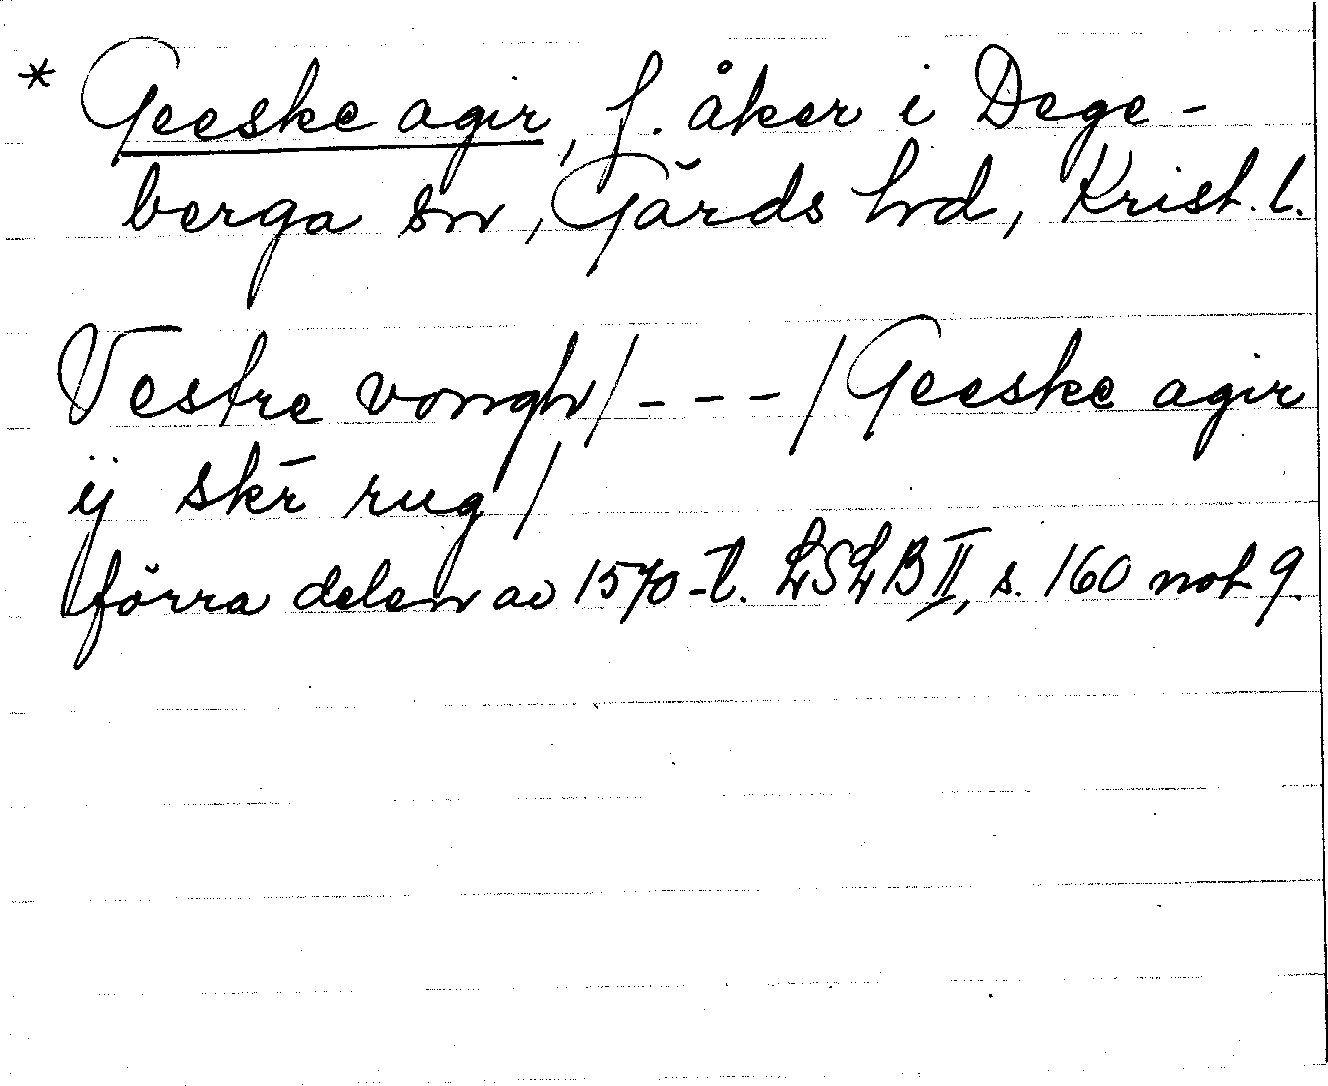 * Geeske agir, f. åker i Dege-
berga sn, Gärds hd, Krist. l.
Vestre vongh/ - - - / Geeske agir
ij skr̄ rug /
förra delen av 1570-t. LSLB II, s. 160 not 9.